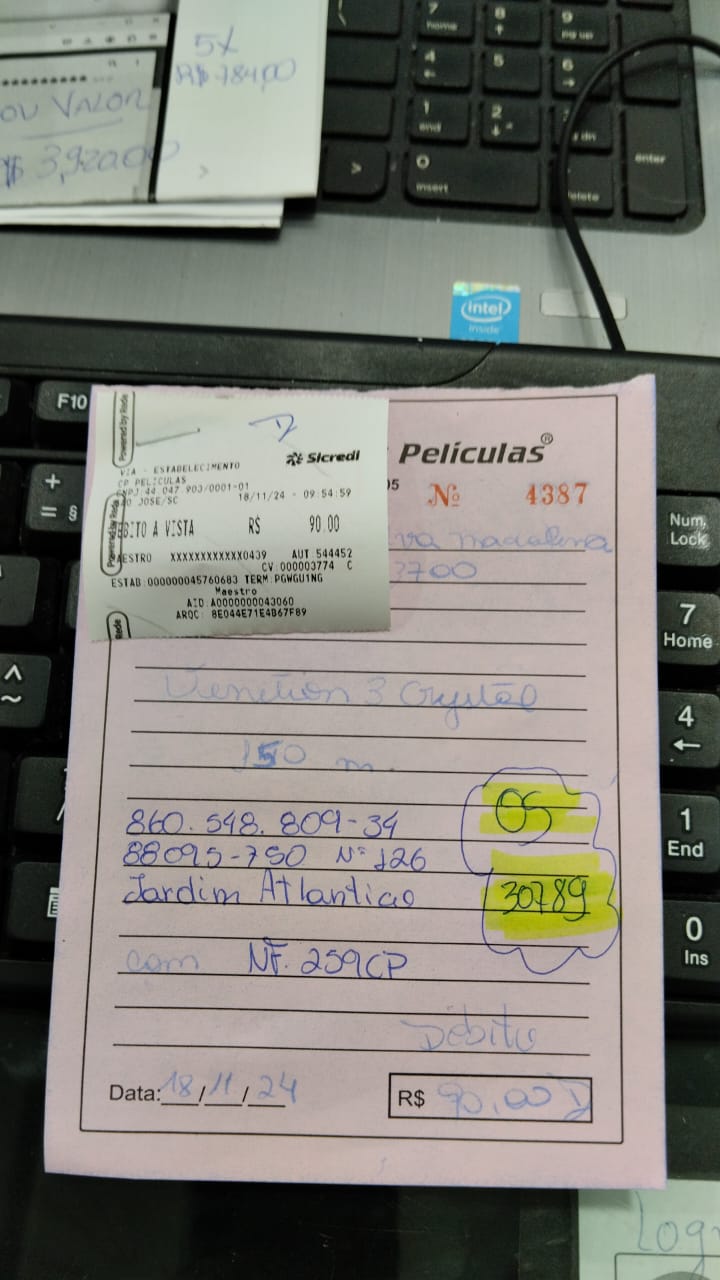 5X
R$ 784,00
OU VALOR
R$ 3,920,00
7
home
8
9
pg up
4
5
6
1
end
2
0
insert
delete
enter
intel
inside
F10
Num
Lock
7
Home
4
1
End
0
Ins
Powered by Rede
Sicredi
VIA - ESTABELECIMENTO
CP PELICULAS
CNPJ:44.047.903/0001-01
SAO JOSE/SC 18/11/24 - 09:54:59
DEBITO A VISTA R$ 90,00
MAESTRO XXXXXXXXXXXX0439 AUT 544452
CV:000003774 C
ESTAB:000000045760683 TERM:PGWGU1NG
Maestro
AID:A0000000043060
ARQC: 8E044E71E4B67F89
Películas®
05 Nº 4387
va madalena
3700
3 Crystal
150 m
860.548.809-34
88095-750 Nº 126
Jardim Atlantico
OS
30789
com NF. 259CP
Débito
Data: 18/11/24
R$ 90,00